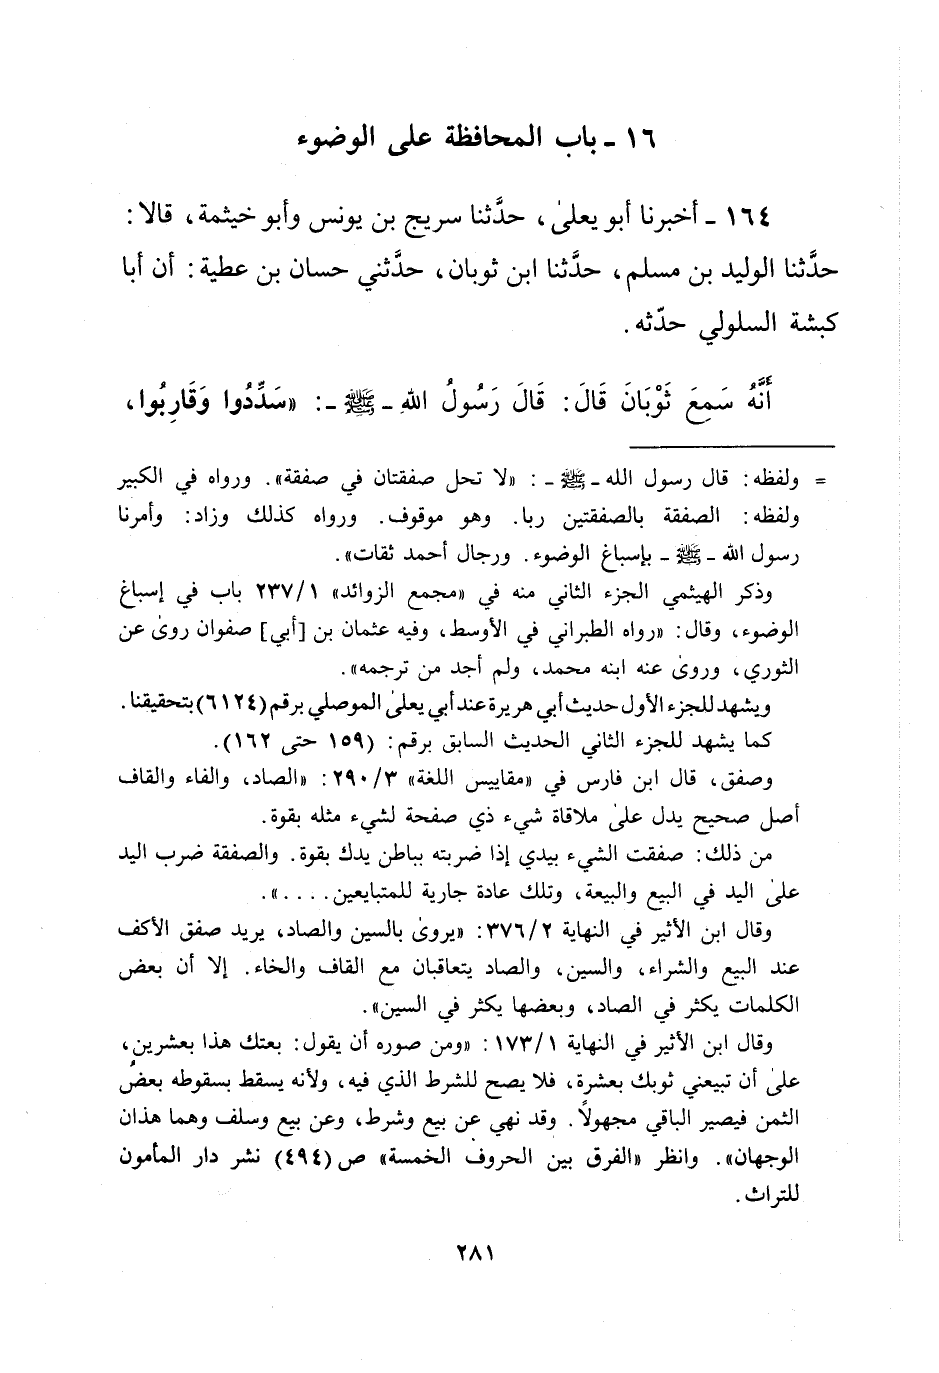 ١٦ ـ باب المحافظة على الوضوء
١٦٤ ـ أخبرنا أبو يعلىٰ، حدَّثنا سريج بن يونس وأبو خيثمة، قالا:
حدَّثنا الوليد بن مسلم، حدَّثنا ابن ثوبان، حدَّثني حسان بن عطية: أن أبا
كبشة السلولي حدّثه.
أَنَّهُ سَمِعَ ثَوْبَانَ قَالَ: قَالَ رَسُولُ اللهِ ـ ﷺ ـ: «سَدِّدُوا وَقَارِبُوا،
= ولفظه: قال رسول الله ـ ﷺ ـ: «لا تحل صفقتان في صفقة». ورواه في الكبير
ولفظه: الصفقة بالصفقتين ربا. وهو موقوف. ورواه كذلك وزاد: وأمرنا
رسول الله ـ ﷺ ـ بإسباغ الوضوء. ورجال أحمد ثقات».
وذكر الهيثمي الجزء الثاني منه في «مجمع الزوائد» ٢٣٧/١ باب في إسباغ
الوضوء، وقال: «رواه الطبراني في الأوسط، وفيه عثمان بن [أبي] صفوان روىٰ عن
الثوري، وروىٰ عنه ابنه محمد، ولم أجد من ترجمه».
ويشهد للجزء الأول حديث أبي هريرة عند أبي يعلىٰ الموصلي برقم (٦١٢٤) بتحقيقنا.
كما يشهد للجزء الثاني الحديث السابق برقم: (١٥٩ حتى ١٦٢).
وصفق، قال ابن فارس في «مقاييس اللغة» ٢٩٠/٣: «الصاد، والفاء والقاف
أصل صحيح يدل علىٰ ملاقاة شيء ذي صفحة لشيء مثله بقوة.
من ذلك: صفقت الشيء بيدي إذا ضربته بباطن يدك بقوة. والصفقة ضرب اليد
علىٰ اليد في البيع والبيعة، وتلك عادة جارية للمتبايعين....».
وقال ابن الأثير في النهاية ٣٧٦/٢: «يروىٰ بالسين والصاد، يريد صفق الأكف
عند البيع والشراء، والسين، والصاد يتعاقبان مع القاف والخاء. إلا أن بعض
الكلمات يكثر في الصاد، وبعضها يكثر في السين».
وقال ابن الأثير في النهاية ١٧٣/١: «ومن صوره أن يقول: بعتك هذا بعشرين،
علىٰ أن تبيعني ثوبك بعشرة، فلا يصح للشرط الذي فيه، ولأنه يسقط بسقوطه بعضُ
الثمن فيصير الباقي مجهولاً. وقد نهي عن بيع وشرط، وعن بيع وسلف وهما هذان
الوجهان». وانظر «الفرق بين الحروف الخمسة» ص (٤٩٤) نشر دار المأمون
للتراث.
٢٨١